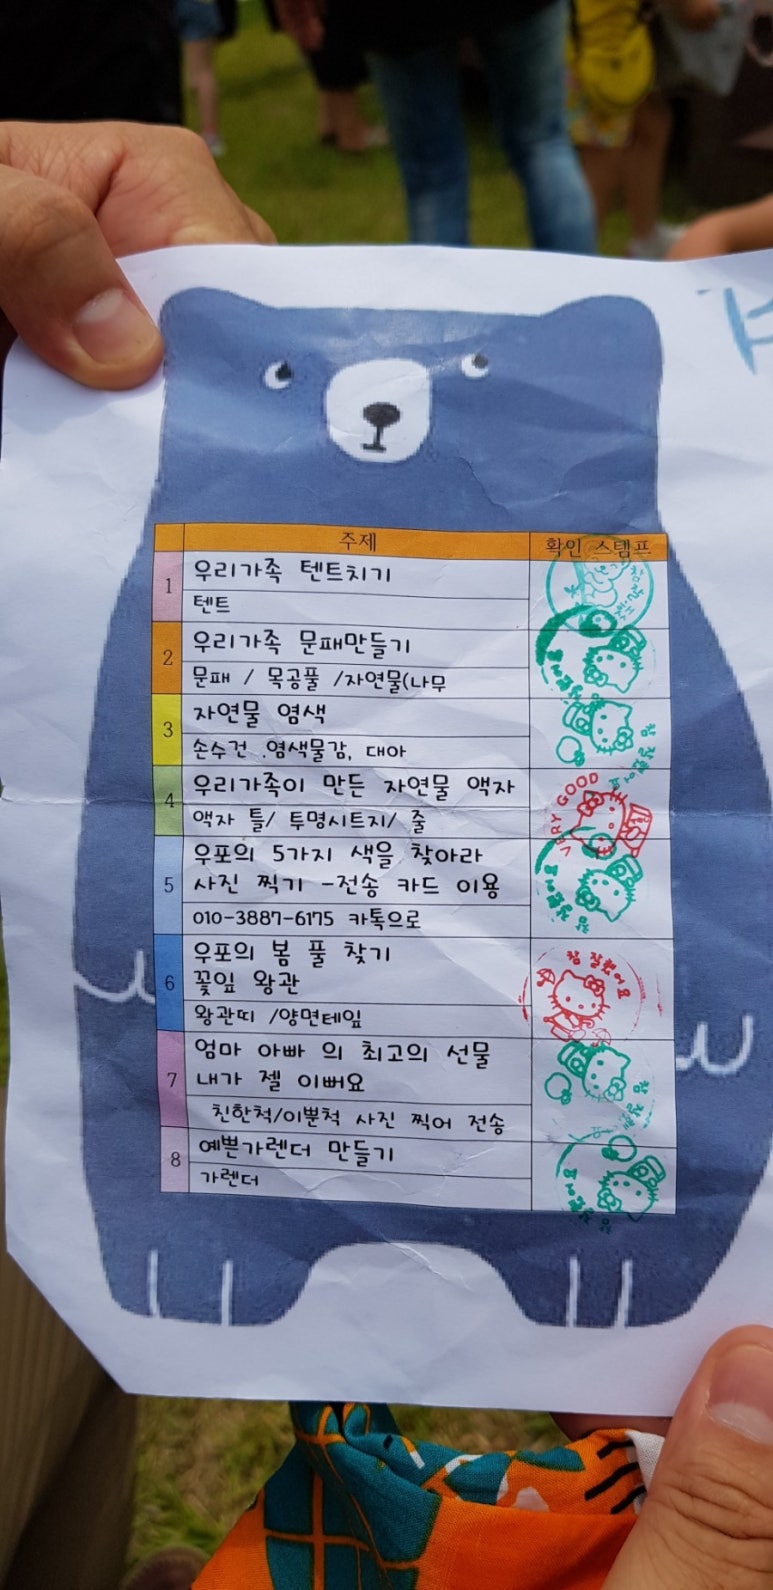 주제 확인 스탬프
1 우리가족 텐트치기
텐트
2 우리가족 문패만들기
문패 / 목공풀 /자연물(나무
3 자연물 염색
손수건 .염색물감, 대야
4 우리가족이 만든 자연물 액자
액자 틀/ 투명시트지/ 줄
VERY GOOD
5 우포의 5가지 색을 찾아라
사진 찍기 -전송 카드 이용
010-3887-6175 카톡으로
6 우포의 봄 풀 찾기
꽃잎 왕관
왕관띠 /양면테잎
참 잘했어요
7 엄마 아빠 의 최고의 선물
내가 젤 이뻐요
친한척/이뿐척 사진 찍어 전송
8 예쁜가렌더 만들기
가렌더